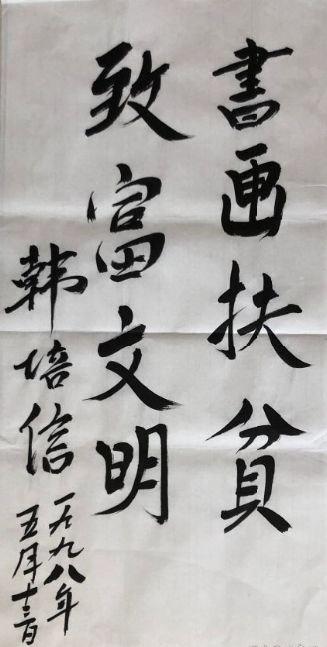 書画扶貧
致富文明
韩培信
一九九八年
五月十三日